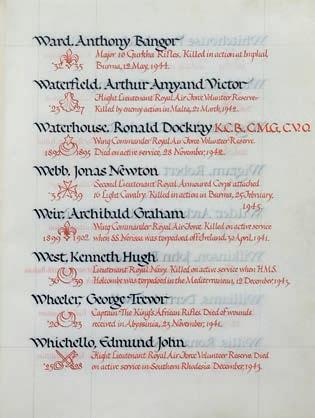 Ward, Anthony Bangor
Major 10 Gurkha Rifles. Killed in action at Imphal,
'32 '35 Burma, 12 May, 1944.
Waterfield, Arthur Anyand Victor
Flight Lieutenant Royal Air Force Volunteer Reserve.
'23 '27 Killed by enemy action in Malta, 21 March, 1942.
Waterhouse, Ronald Dockray K.C.B., C.M.G., C.V.O.
Wing Commander Royal Air Force Volunteer Reserve.
1892 1895 Died on active service, 28 November, 1942.
Webb, Jonas Newton
Second Lieutenant Royal Armoured Corps attached
'35 '39 16 Light Cavalry. Killed in action in Burma, 25 February,
1945.
Weir, Archibald Graham
Wing Commander Royal Air Force. Killed on active service
1899 1902 when S.S. Nerissa was torpedoed off Ireland, 30 April, 1941.
West, Kenneth Hugh
Lieutenant Royal Navy. Killed on active service when H.M.S.
'30 Holcombe was torpedoed in the Mediterranean, 12 December, 1943.
Wheeler, George Trevor
Captain The King's African Rifles. Died of wounds
'20 '23 received in Abyssinia, 23 November, 1941.
Whichello, Edmund John
Flight Lieutenant Royal Air Force Volunteer Reserve. Died
'25 '28 on active service in Southern Rhodesia December, 1943.